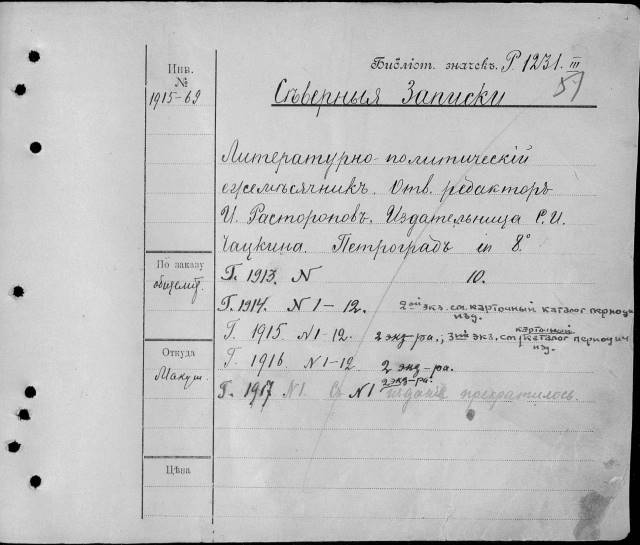 Библіот. значекъ. P 1231. III
51
Инв.
№
1915-69
Сѣверныя Записки
Литературно-политическій
ежемѣсячникъ. Отв. редакторъ
И. Растороповъ. Издательница С. И.
Чацкина. Петроградъ in 8°.
По заказу
общелит.
Г. 1913. N 10.
Г. 1914. N 1-12. 2ой экз. см. карточный каталог периодич
изд.
Г. 1915. N 1-12. 2 экз-ра., 3ий экз. см. карточный каталог периодич
изд.
Г. 1916. N 1-12 2 экз-ра.
Откуда
Макуш.
2 экз-ра.
Г. 1917 N 1. Съ N 1 изданіе прекратилось.
Цѣна